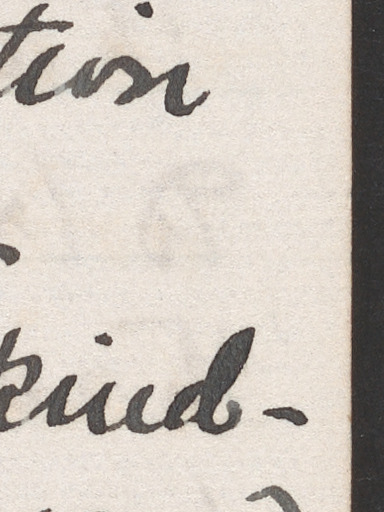 tion
kind-